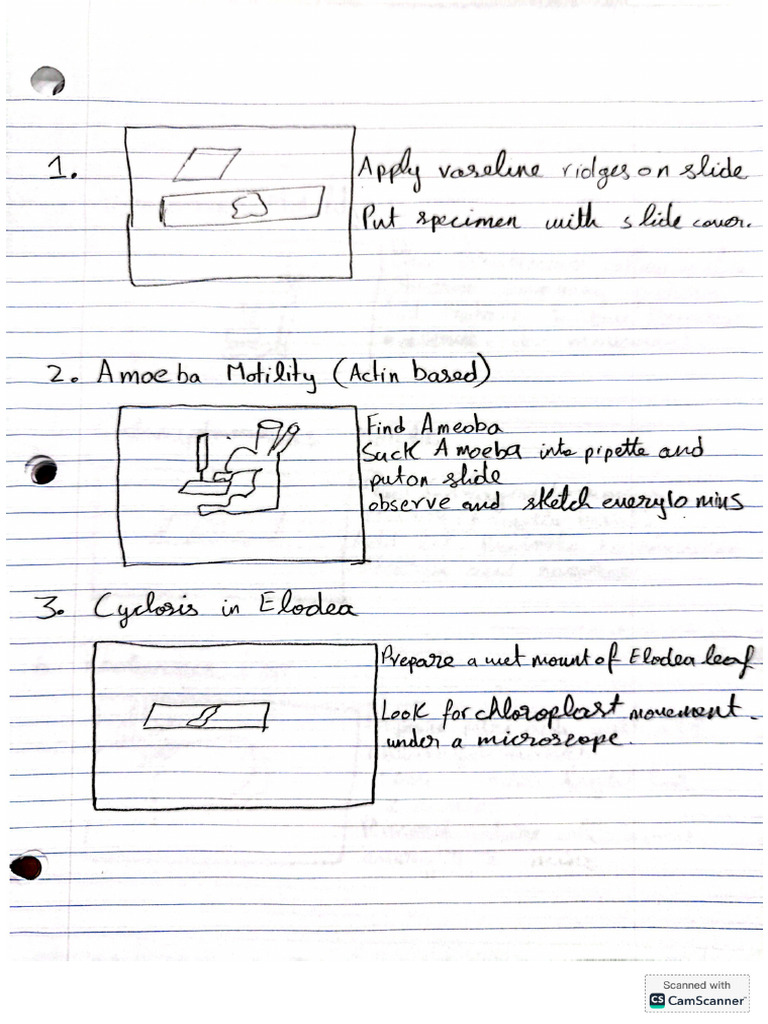 1.
Apply vaseline ridges on slide
Put specimen with slide cover.
2. Amoeba Motility (Actin based)
Find Ameoba
Suck Amoeba into pipette and
put on slide
observe and sketch every 10 mins
3. Cyclosis in Elodea
Prepare a wet mount of Elodea leaf
Look for chloroplast movement
under a microscope.
Scanned with
CS CamScanner